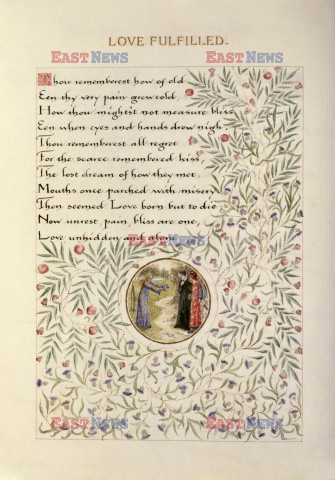 LOVE FULFILLED.
EAST NEWS EAST NEWS
Thou rememberest how of old
Een thy very pain grew cold,
How thou might'st not measure bliss
Een when eyes and hands drew nigh.
Thou rememberest all regret
For the scarce remembered kiss,
The lost dream of how they met,
Mouths once parched with misery
Then seemed Love born but to die
Now unrest, pain, bliss are one,
Love unhidden and alone.
EAST NEWS
EAST NEWS EAST NEWS